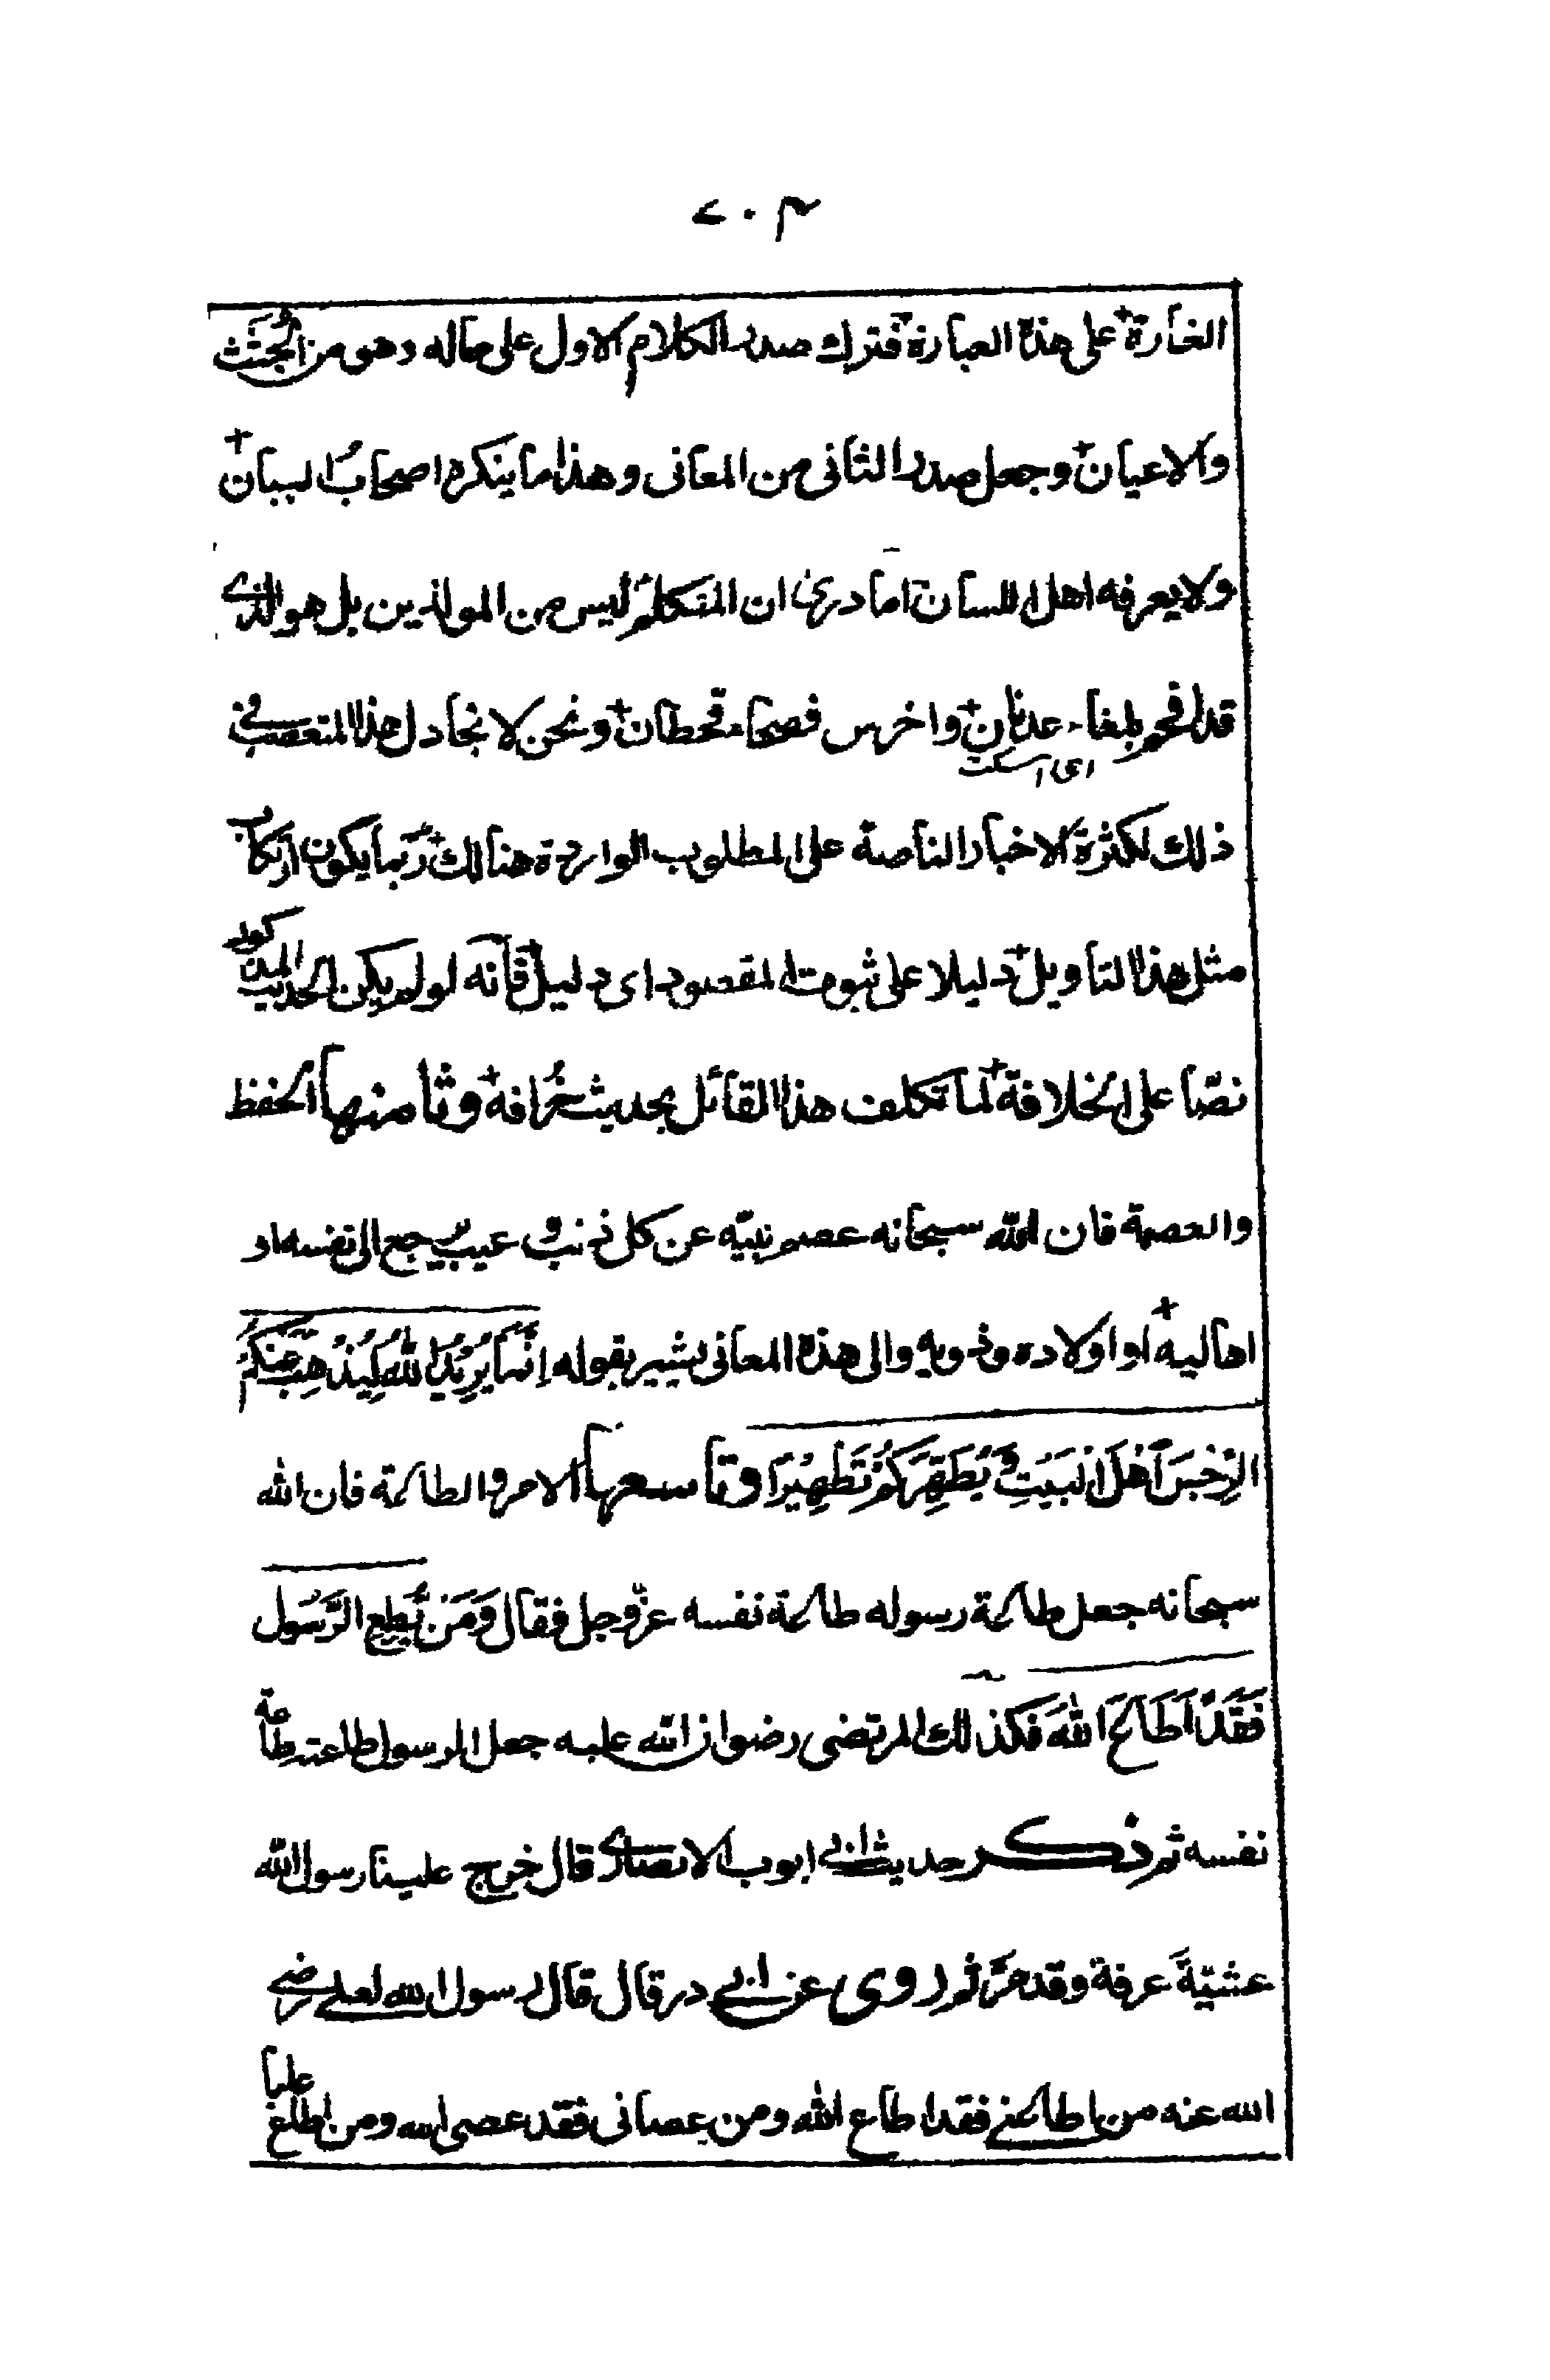 ٢٠٣
الغارة على هذه العبارة فترك صدر الكلام الاول على حاله وهو من الجُثَث
والاعيان وجعل صدر الثانى من المعانى وهذا ما ينكره اصحاب البيان
ولا يعرفه اهل اللسان اما درى ان المتكلم ليس من المولدين بل هو الذى
قد افحم بلغاء عدنان واخرس فصحاء قحطان ونحن لا نجادل هذا المتعصب فى
اى اسكت
ذلك لكثرة الاخبار الناصة على المطلوب الواردة هنالك ربما يكون ارتكاب
مثل هذا التاويل دليلا على ثبوت المقصود اى دليل فانه لو لم يكن الحديث المذكور
نصّا على الخلافة لما تكلف هذا القائل بحديث خُرافه وثامنها الحفظ
والعصمة فان الله سبحانه عصم نبيّه عن كل ذنب وعيب يرجع الى نفسه او
اهاليه او اولاده وذويه والى هذه المعانى يشير بقوله اِنَّمَا يُرِيْدُ اللّٰهُ لِيُذْهِبَ عَنْكُمُ
الرِّجْسَ اَهْلَ الْبَيْتِ وَ يُطَهِّرَكُمْ تَطْهِيْرًا وتاسعها الامر والطاعة فان الله
سبحانه جعل طاعة رسوله طاعة نفسه عزّ وجل فقال وَمَنْ يُّطِعِ الرَّسُوْل
فَقَدْ اَطَاعَ اللّٰهَ فكذلك المرتضى رضوان الله عليه جعل الرسول طاعته طاعة
نفسه ثم ذكر حديث ابى ايوب الانصارى قال خرج علينا رسول الله
عشيّةَ عرفة وقد مرّ ثم روى عن ابى ذر قال قال رسول الله لعلى رضى
الله عنه من اطاعنى فقد اطاع الله ومن عصانى فقد عصى الله ومن اطاع عليا